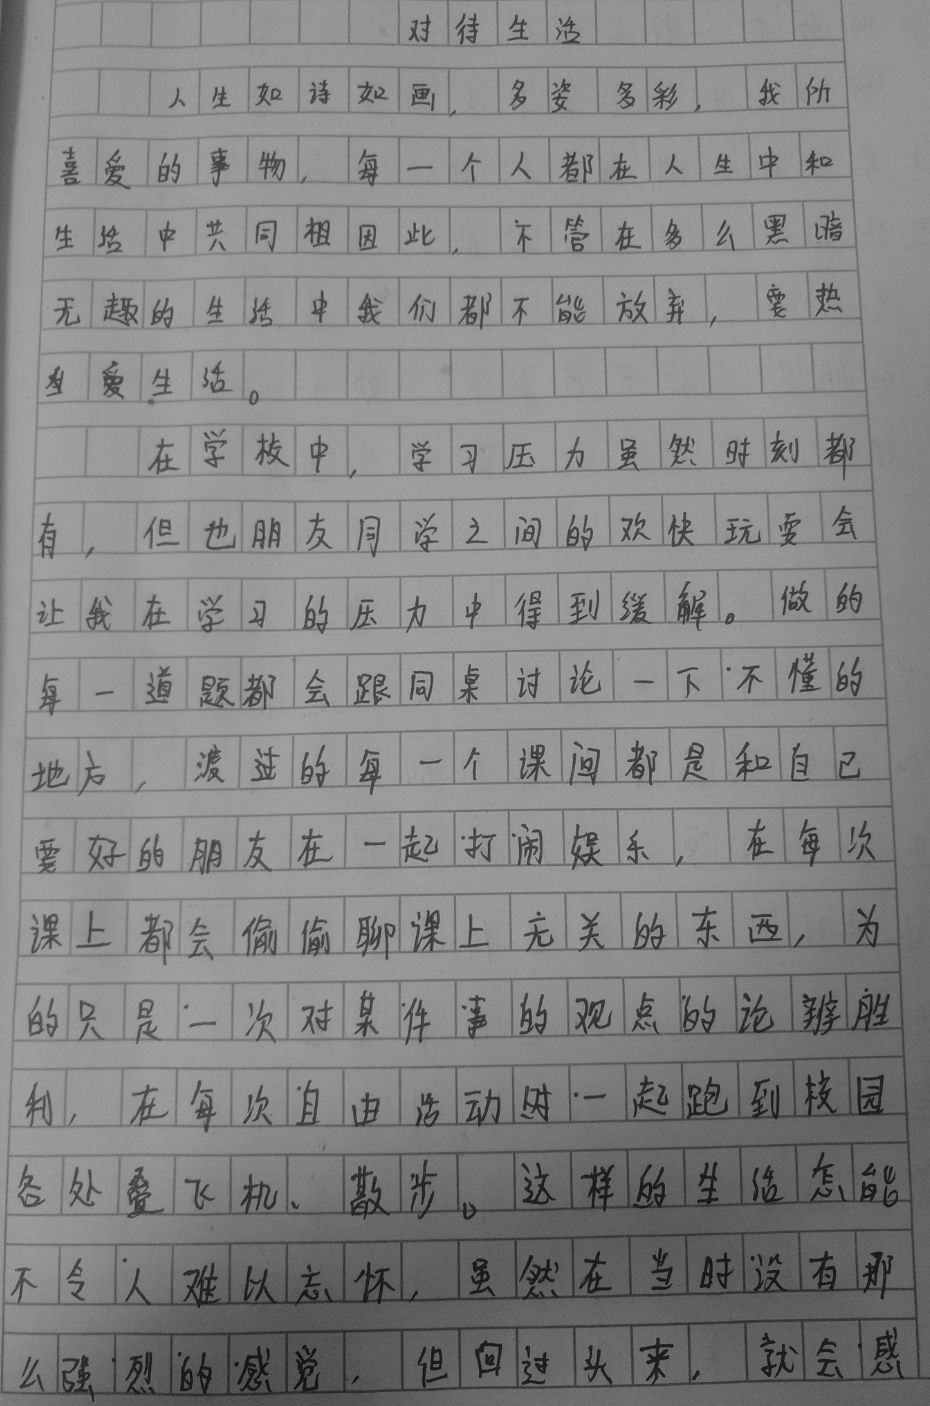 对待生活
人生如诗如画，多姿多彩，我所
喜爱的事物，每一个人都在人生中和
生活中共同相因此，不管在多么黑暗
无趣的生活中我们都不能放弃，要热
爱生活。
在学校中，学习压力虽然时刻都
有，但也朋友同学之间的欢快玩耍会
让我在学习的压力中得到缓解。做的
每一道题都会跟同桌讨论一下不懂的
地方，渡过的每一个课间都是和自己
要好的朋友在一起打闹娱乐，在每次
课上都会偷偷聊课上无关的东西，为
的只是一次对某件事的观点的论辩胜
利，在每次自由活动时一起跑到校园
各处叠飞机、散步。这样的生活怎能
不令人难以忘怀，虽然在当时没有那
么强烈的感觉，但回过头来，就会感